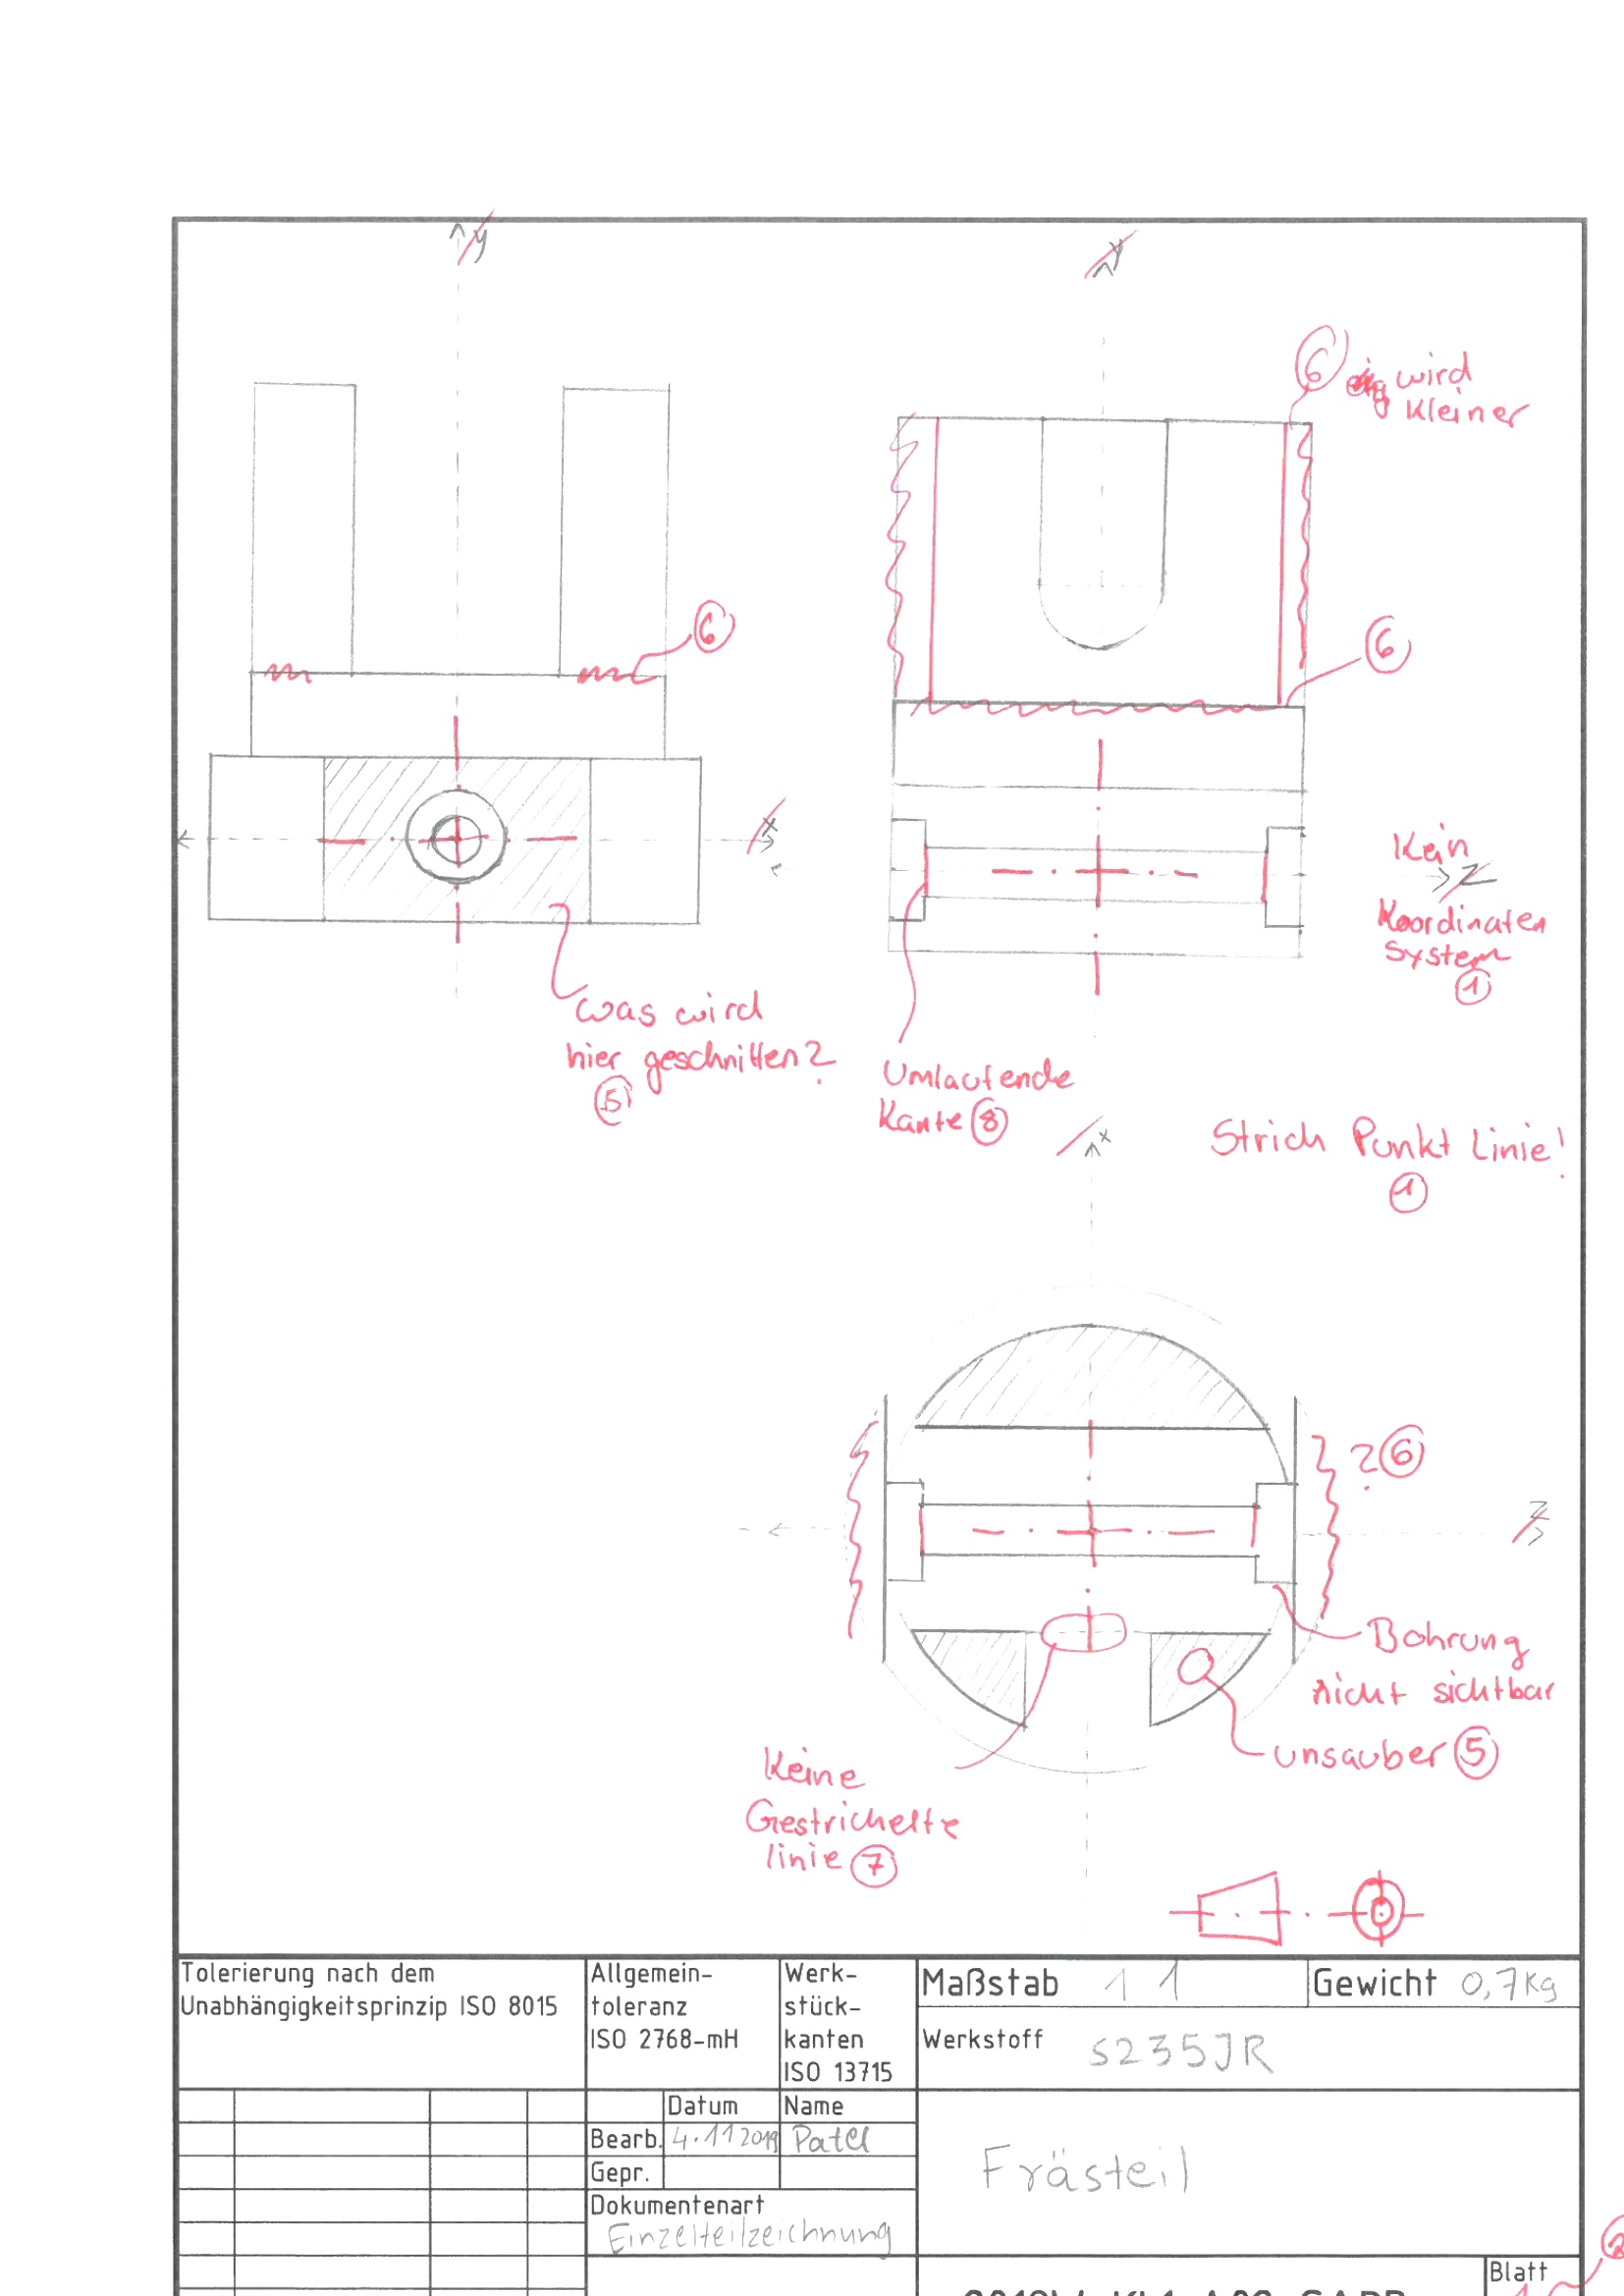 y
y
6 wird
kleiner
6
6
x
Kein
z
Koordinaten
System
1
was wird
hier geschnitten?
5
Umlaufende
Kante 8
x
Strich Punkt Linie!
1
? 6
z
Bohrung
nicht sichtbar
unsauber 5
Keine
Gestrichelte
linie 7
Tolerierung nach dem
Unabhängigkeitsprinzip ISO 8015
Allgemein-
toleranz
ISO 2768-mH
Werk-
stück-
kanten
ISO 13715
Maßstab 1 1
Gewicht 0,7Kg
Werkstoff S235JR
Datum Name
Bearb. 4.11 2019 Patel
Gepr.
Dokumentenart
Einzelteilzeichnung
Frästeil
Blatt
2